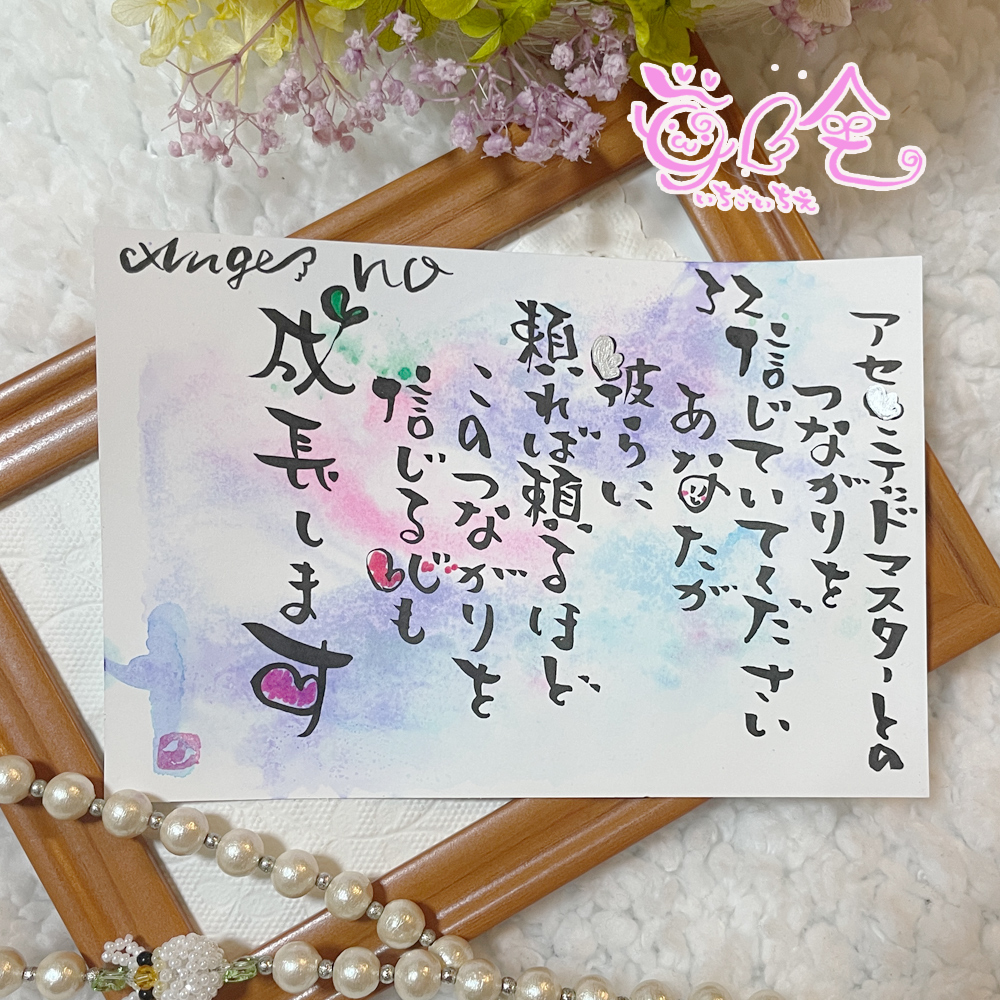 Angel no
32
アセンデッドマスターとの
つながりを
信じていてください
あなたが
彼らに
頼れば頼るほど
このつながりを
信じる心も
成長します
いちごいちえ